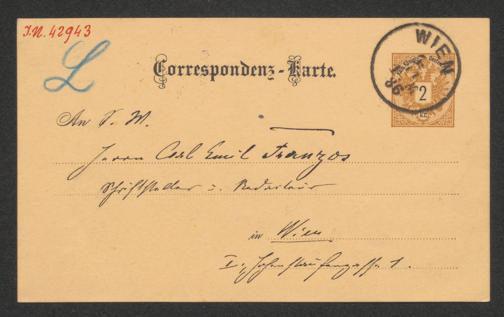 I.N. 42943
L
WIEN
86
2
Correspondenz-Karte.
An S. W.
Herrn Carl Emil Franzos
Schriftsteller u. Redacteur
in Wien
I., Hohenstaufengasse 1.